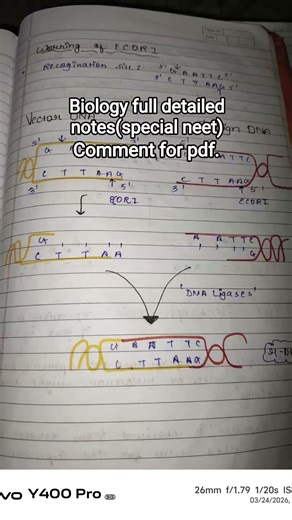 Working of ECORI
Recognition site :- 5' G A A T T C 3'
3' C T T A A G 5'
Biology full detailed
notes(special neet)
Comment for pdf.
Vector DNA
DNA
5'
G
T T C
C T T A A G
C T T A A G
3'
5'
3'
5'
ECORI
ECORI
G
A A T T C
C T T A A
G
'DNA Ligases'
G A A T T C
C T T A A G
vo Y400 Pro
26mm f/1.79 1/20s IS
03/24/2026,